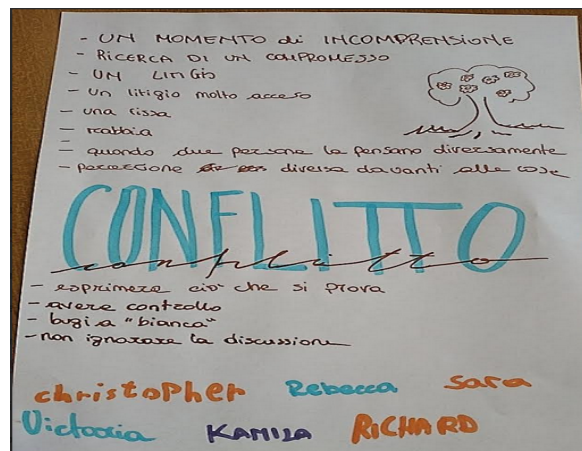 - UN MOMENTO di INCOMPRENSIONE
- RICERCA DI UN COMPROMESSO
- UN LITIGIO
- Un litigio molto acceso
- una rissa
- rabbia
- quando due persone la pensano diversamente
- percezione diversa davanti alle cose
CONFLITTO
conflitto
- esprimere ciò che si prova
- avere controllo
- bugia "bianca"
- non ignorare la discussione
christopher Rebecca Sara
Victoria KAMILA RiCHARD